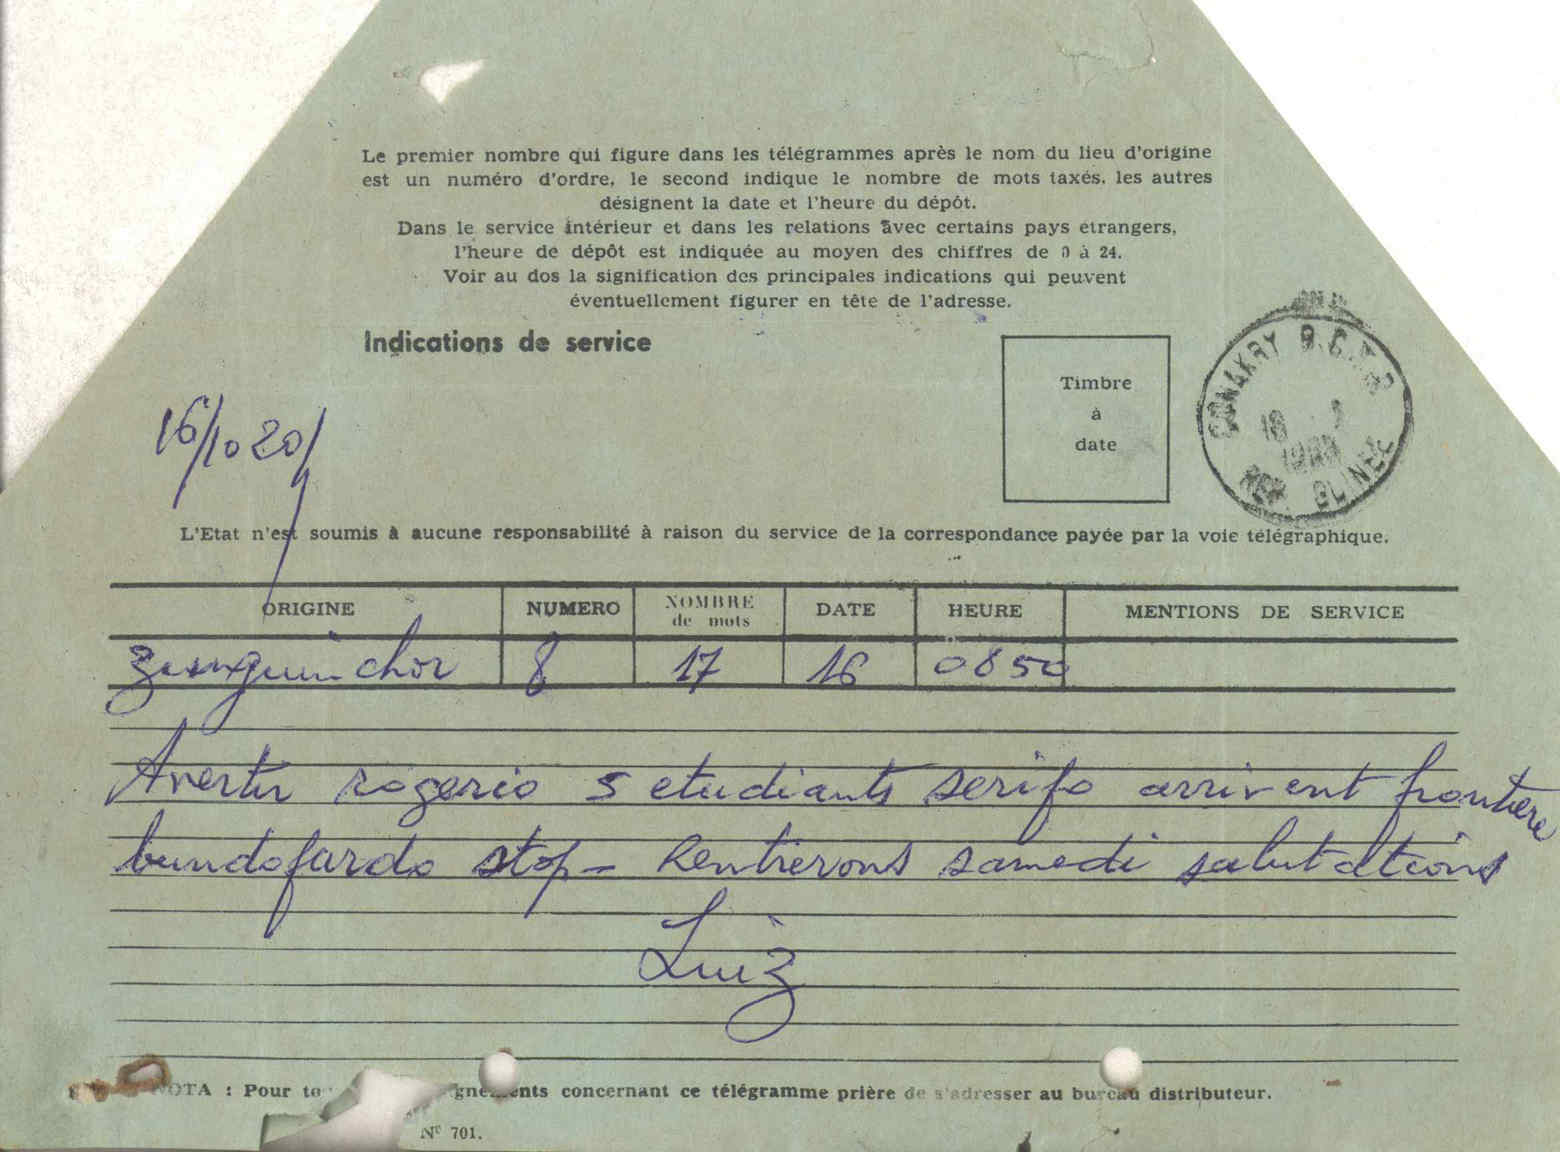 Le premier nombre qui figure dans les télégrammes après le nom du lieu d'origine
est un numéro d'ordre, le second indique le nombre de mots taxés. les autres
désignent la date et l'heure du dépôt.
Dans le service intérieur et dans les relations avec certains pays étrangers,
l'heure de dépôt est indiquée au moyen des chiffres de 0 à 24.
Voir au dos la signification des principales indications qui peuvent
éventuellement figurer en tête de l'adresse.
Indications de service
Timbre
à
date
CONAKRY
GUINEE
16/10 20/
L'Etat n'est soumis à aucune responsabilité à raison du service de la correspondance payée par la voie télégraphique.
ORIGINE NUMERO NOMBRE de mots DATE HEURE MENTIONS DE SERVICE
Zinguinchor 8 17 16 0850
Avertir rogerio 5 etudiants serifo arrivent frontiere
bundofardo stop - Rentrerons samedi salutations
Luiz
NOTA : Pour concernant ce télégramme prière de s'adresser au bureau distributeur.
N° 701.